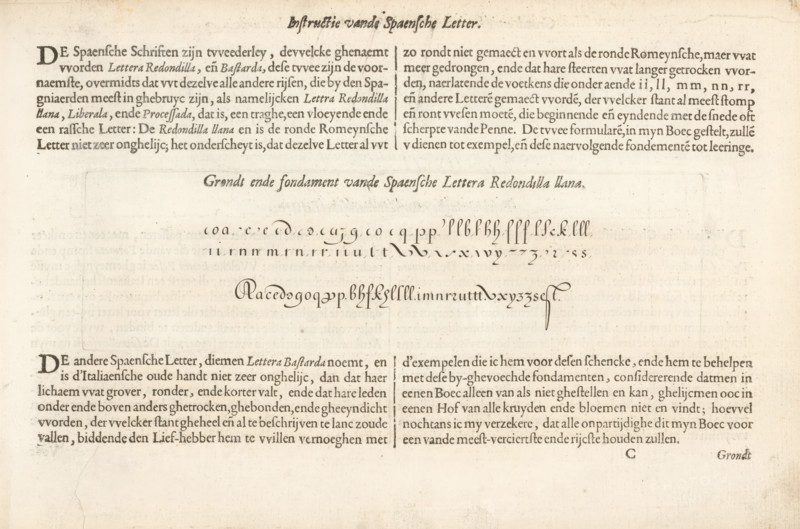 Instructie vande Spaensche Letter.
DE Spaensche Schriften zijn tvveederley, devvelcke ghenaemt
vvorden Lettera Redondilla, eñ Bastarda, dese tvvee zijn de voor-
naemste, overmidts dat vvt dezelve alle andere rijsen, die by den Spa-
gniaerden meest in ghebruyc zijn, als namelijcken Lettra Redondilla
llana, Liberala, ende Processada, dat is, een traghe, een vloeyende ende
een rassche Letter: De Redondilla llana en is de ronde Romeynsche
Letter niet zeer onghelijc; het onderscheyt is, dat dezelve Letter al vvt
zo rondt niet gemaect en vvort als de ronde Romeynsche, maer vvat
meer gedrongen, ende dat hare steerten vvat langer getrocken vvor-
den, naerlatende de voetkens die onder aende ii, ll, mm, nn, rr,
eñ andere Letterē gemaect vvordē, der vvelcker stant al meest stomp
eñ ront vvesen moetē, die beginnende eñ eyndende met de snede oft
scherpte vande Penne. De tvvee formularē, in myn Boec gestelt, zullē
v dienen tot exempel, eñ dese naervolgende fondementē tot leeringe.
Grondt ende fondament vande Spaensche Lettera Redondilla llana.
DE andere Spaensche Letter, diemen Lettera Bastarda noemt, en
is d'Italiaensche oude handt niet zeer onghelijc, dan dat haer
lichaem vvat grover, ronder, ende korter valt, ende dat hare leden
onder ende boven anders ghetrocken, ghebonden, ende gheeyndicht
vvorden, der vvelcker stant gheheel eñ al te beschrijven te lanc zoude
vallen, biddende den Lief-hebber hem te vvillen vernoeghen met
d'exempelen die ic hem voor desen schencke, ende hem te behelpen
met dese by-ghevoechde fondamenten, considererende datmen in
eenen Boec alleen van als niet ghestellen en kan, ghelijcmen ooc in
eenen Hof van alle kruyden ende bloemen niet en vindt; hoevvel
nochtans ic my verzekere, dat alle onpartijdighe dit myn Boec voor
een vande meest-verciertste ende rijcste houden zullen.
C Grondt